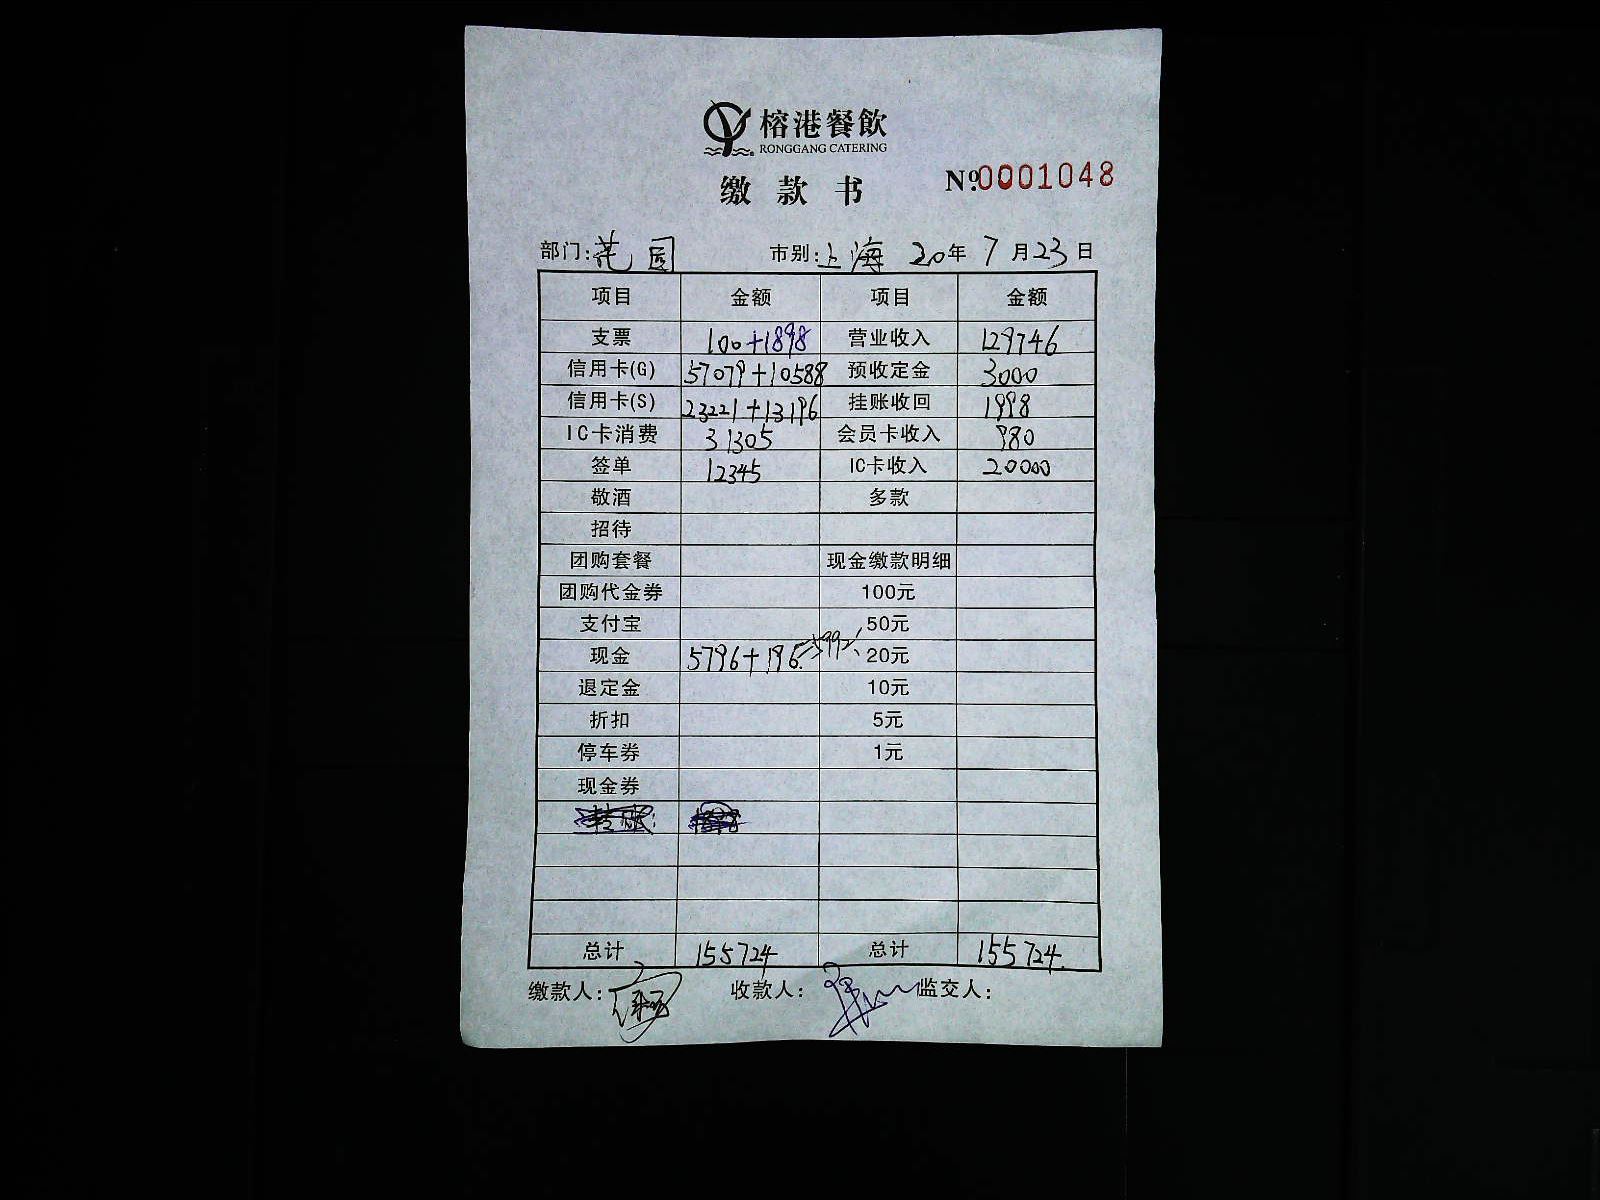 榕港餐飲
RONGGANG CATERING
缴款书 №0001048
部门:花园 市别:上海 20年7月23日
项目 金额 项目 金额
支票 100+1898 营业收入 129746
信用卡(G) 57079+10588 预收定金 3000
信用卡(S) 23221+13196 挂账收回 1998
IC卡消费 31305 会员卡收入 980
签单 12345 IC卡收入 20000
敬酒 多款
招待
团购套餐 现金缴款明细
团购代金券 100元
支付宝 50元
现金 5796+196=5992 20元
退定金 10元
折扣 5元
停车券 1元
现金券
总计 155724 总计 155724.
缴款人: 收款人: 监交人: